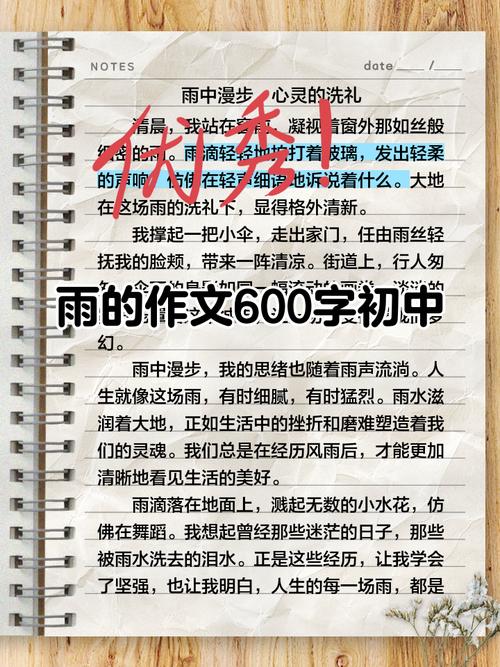 NOTES
date / 
雨中漫步，心灵的洗礼
优秀！
清晨，我站在窗前，凝视着窗外那如丝般
细密的雨。雨滴轻轻地拍打着玻璃，发出轻柔
的声响，仿佛在轻声细语地诉说着什么。大地
在这场雨的洗礼下，显得格外清新。
我撑起一把小伞，走出家门，任由雨丝轻
抚我的脸颊，带来一阵清凉。街道上，行人匆
雨的作文600字初中
幻。
雨中漫步，我的思绪也随着雨声流淌。人
生就像这场雨，有时细腻，有时猛烈。雨水滋
润着大地，正如生活中的挫折和磨难塑造着我
们的灵魂。我们总是在经历风雨后，才能更加
清晰地看见生活的美好。
雨滴落在地面上，溅起无数的小水花，仿
佛在舞蹈。我想起曾经那些迷茫的日子，那些
被雨水洗去的泪水。正是这些经历，让我学会
了坚强，也让我明白，人生的每一场雨，都是